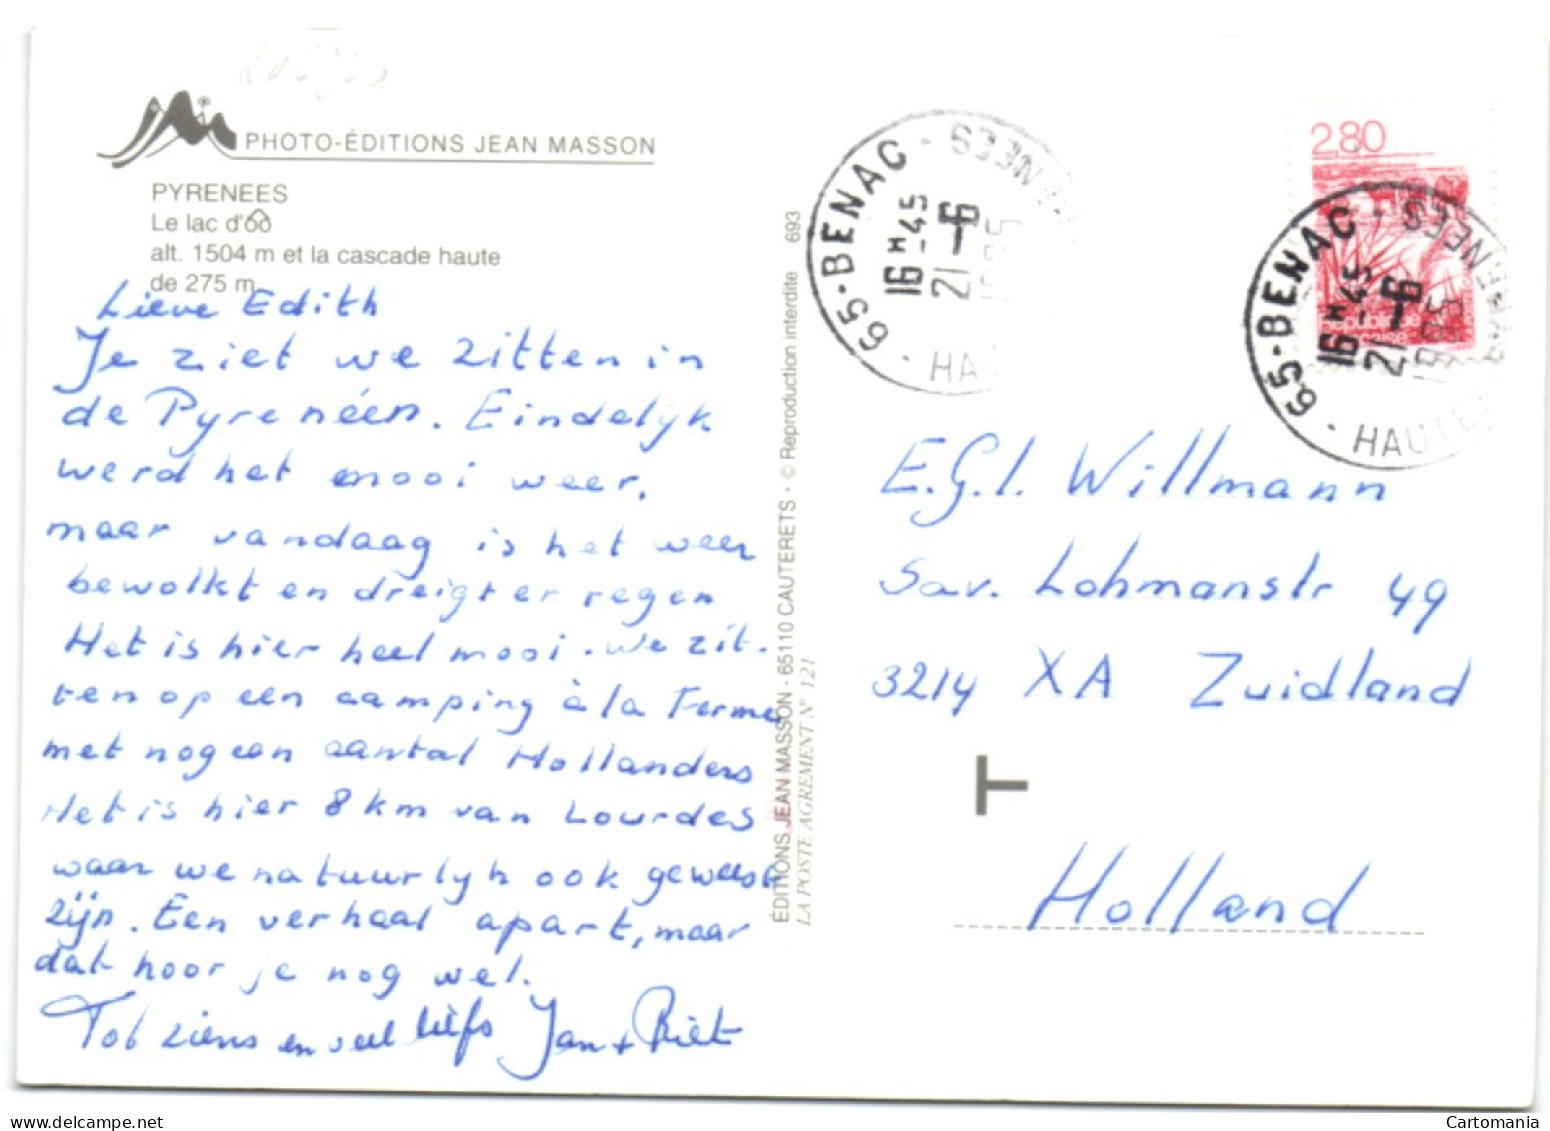 PHOTO-ÉDITIONS JEAN MASSON
PYRENEES
Le lac d'ôô
alt. 1504 m et la cascade haute
de 275 m.
Lieve Edith
Je ziet we zitten in
de Pyreneéën. Eindelijk
werd het mooi weer,
maar vandaag is het weer
bewolkt en dreigt er regen
Het is hier heel mooi. We zit-
ten op een camping à la Ferme
met nog een aantal Hollanders
Het is hier 8 km van Lourdes
waar we natuurlijk ook geweest
zijn. Een verhaal apart, maar
dat hoor je nog wel.
Tot ziens en veel liefs Jan + Riet
ÉDITIONS JEAN MASSON - 65110 CAUTERETS · © Reproduction interdite 693
LA POSTE AGREMENT N° 121
65-BENAC - NEES
16H-45
21-6
HA
2,80
République
65-BENAC - NEES
16H-45
21-6
HAUTE
E.G.I. Willmann
Sav. Lohmanstr 49
3214 XA Zuidland
T
Holland
Cartomania